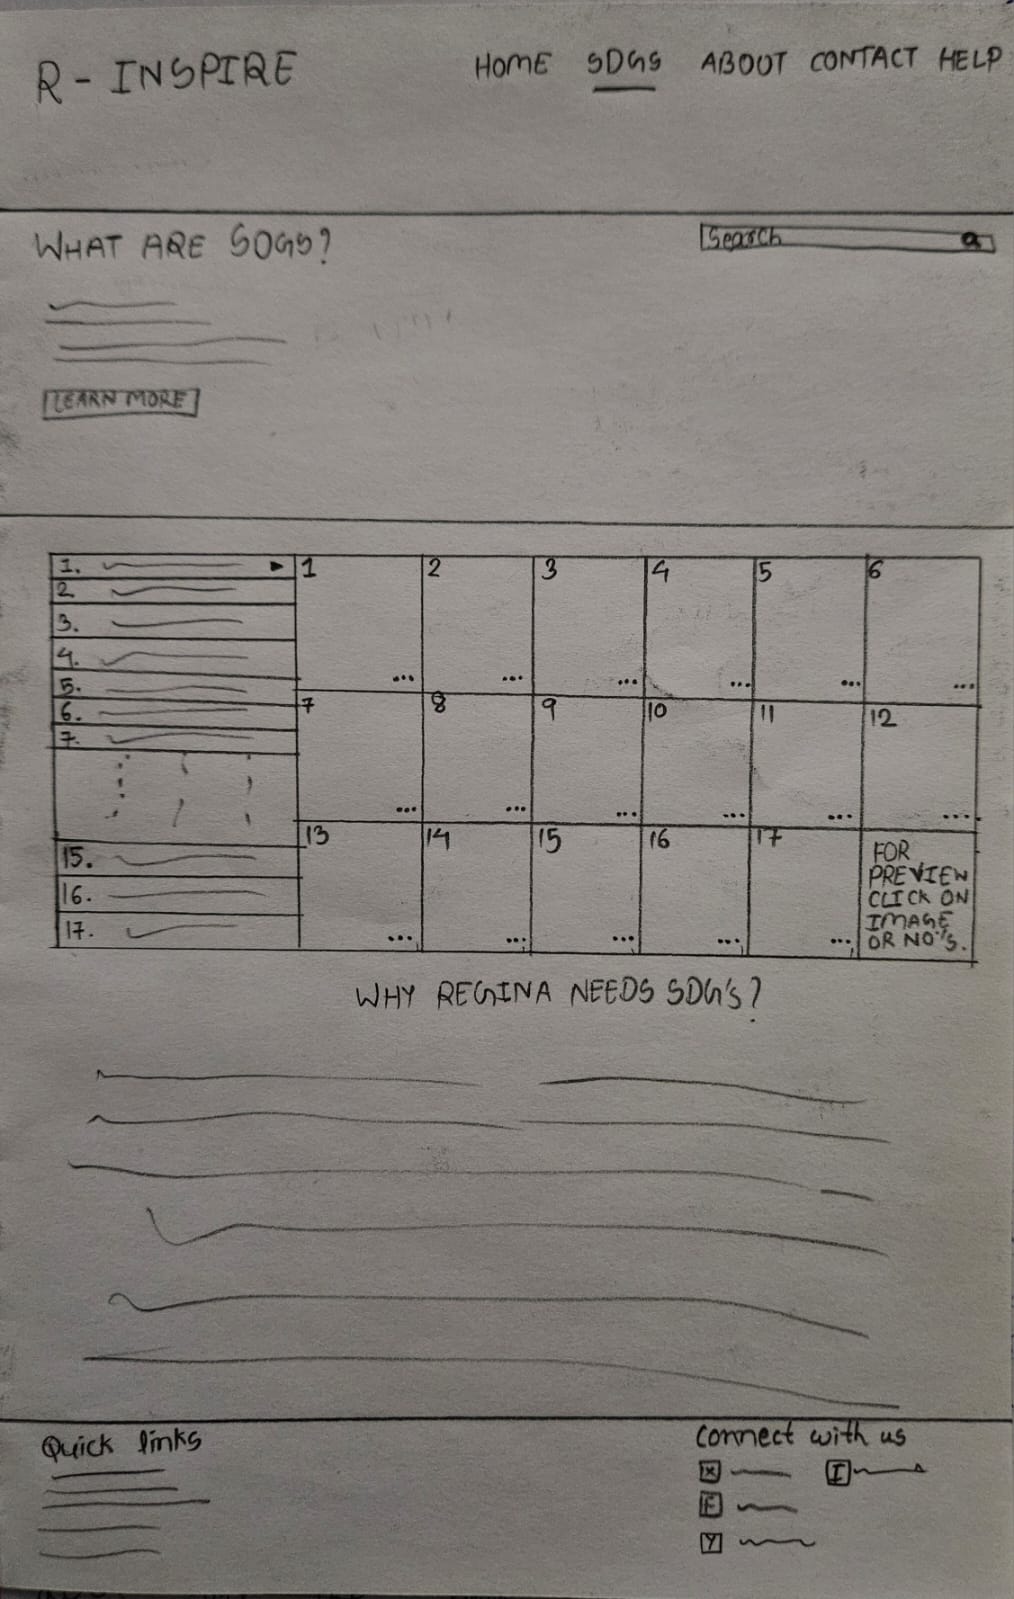 R - INSPIRE
HOME SDGS ABOUT CONTACT HELP
WHAT ARE SDGS?
Search
LEARN MORE
1.
2
3.
4.
5.
6.
7.
15.
16.
17.
1 2 3 4 5 6
... ... ... ... ... ...
7 8 9 10 11 12
... ... ... ... ... ....
13 14 15 16 17
... ... ... ... ...
FOR
PREVIEW
CLICK ON
IMAGE
OR NO.'S.
WHY REGINA NEEDS SDG'S?
Quick links
Connect with us
X I
F
Y